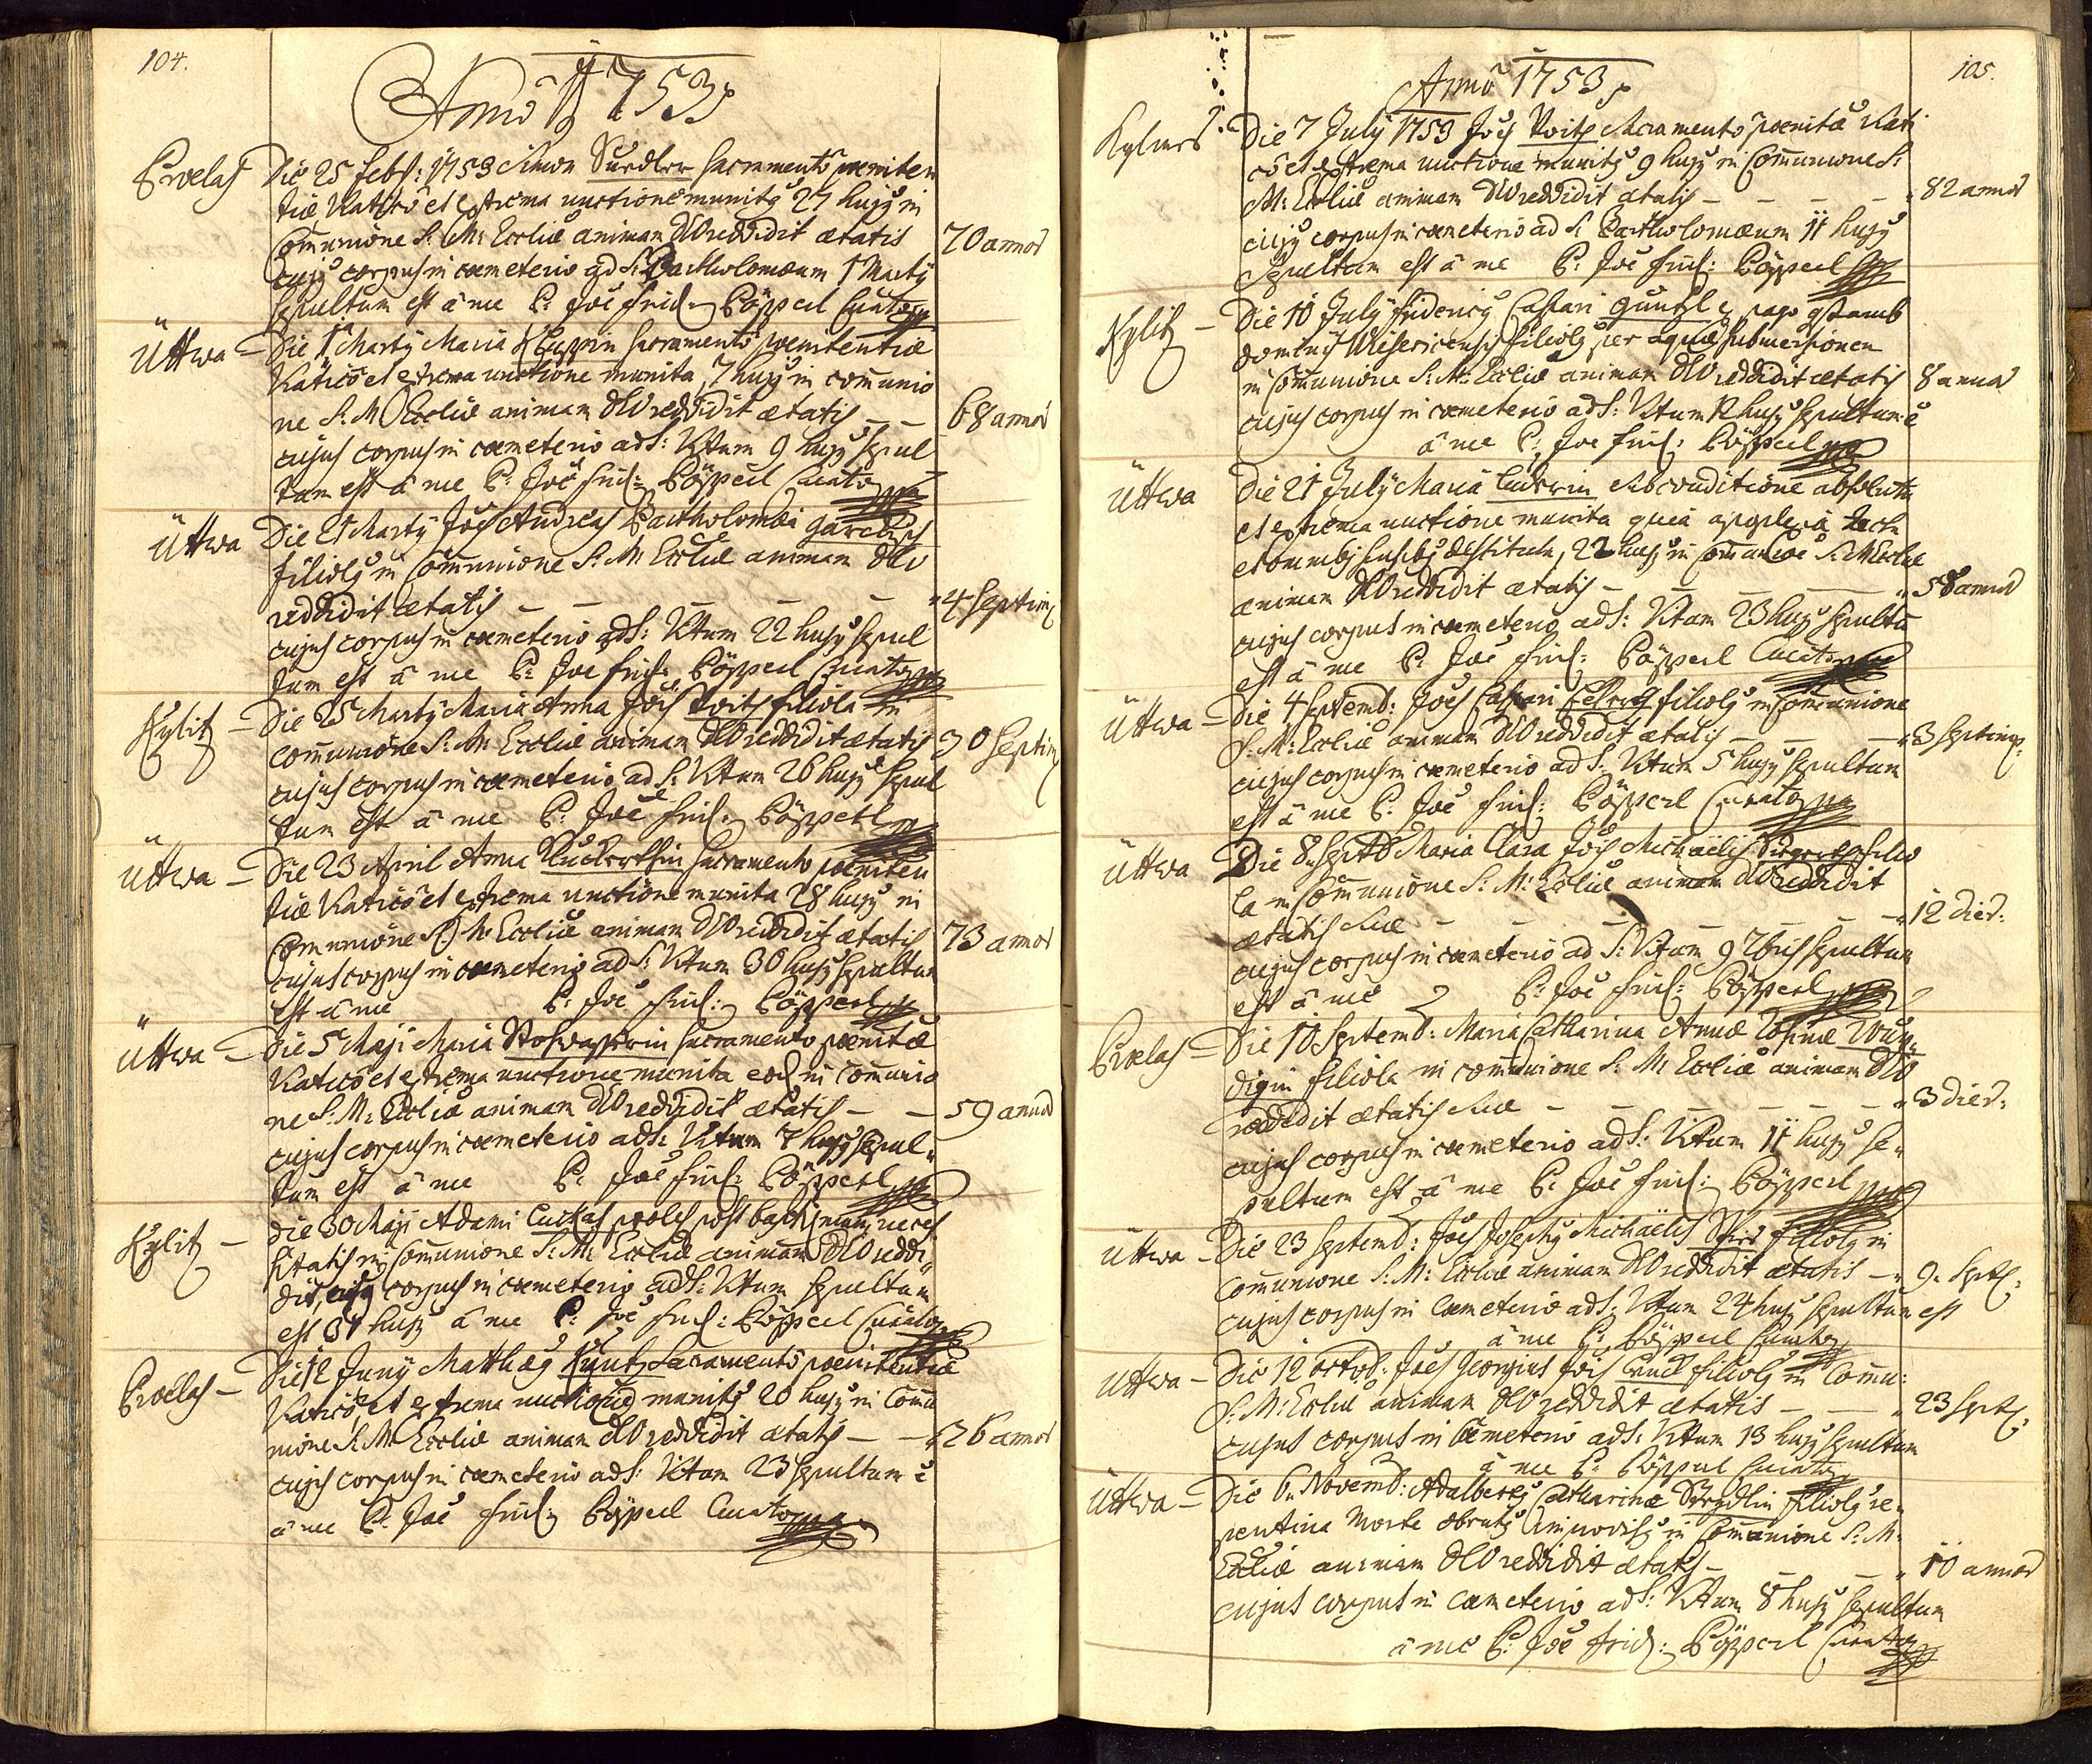 104.
Anno 1753
Proelas Die 25 Febr: 1753 Simon Suedler sacramento poeniten
tiae Viatico et extrema unctione munitq 27 hujq in
Communione S: M: Eccliae animam DEO reddidit aetatis 70 annor
cujq corpus in coemeterio ad S: Bartholomaeum 1 Martÿ
sepultum est à me P: Joë Frid: Pöpperl Curato
Üttwa – Die 1 Martÿ Maria sacramento poenitentiae
Viatico et extrema unctione munita, 7 hujq in communio
ne S: M Eccliae animam DEO reddidit aetatis – – 68 annor
cujus corpus in coemeterio ad S: Vitum 9 hujq sepul
tum est à me P: Joë Frid: Pöpperl Curato
Üttwa Die 21 Martÿ Joës Andreas Bartholomaei
filiolq in Communione S: M Eccliae animam DEO
reddidit aetatis – – – – – 4 septim
cujus corpus in coemeterio ad S: Vitum 22 hujq sepul
tum est à me P: Joë Frid: Pöpperl Curato
Kylitz – Die 25 Martÿ Maria Anna Jöis Voits filiola in
communione S: M: Eccliae animam DEO reddidit aetatis 30 septim
cujus corpus in coemeterio ad S: Vitum 26 hujq sepul
tum est à me P: Joë Frid: Pöpperl
Üttwa – Die 23 April Anna sacramento poeniten
tiae Viatico et extrema unctione munita 28 hujq in
Communione S: M: Eccliae animam DEO reddidit aetatis 73 annor
cujus corpus in coemeterio ad S: Vitum 30 hujq sepultum
est à me P: Joë Frid: Pöpperl
Üttwa – Die 5 Maji Maria Stohwasserin sacramento poenitae
Viatico et extrema unctione munita eod in communio
ne S: M: Eccliae animam DEO reddidit aetatis – – 59 annor
cujus corpus in coemeterio ad S: Vitum 7 hujq sepul
tum est à me P: Joë Frid: Pöpperl
Kylitz – Die 30 Maji Adami Luckas proles post baptismum neces
sitatis in Communione S: M: Eccliae animam DEO reddi
dit, cujq corpus in coemeterio ad S: Vitum sepultum
est 31 hujq à me P: Joë Frid: Pöpperl Curato
Proelas – Die 12 Junÿ Matthaeq Kuntz Sacramento poenitentiae
Viatico et extrema unctione munitq 20 hujq in Commu
nione S: M: Eccliae animam DEO reddidit aetatis – – 26 annor
cujus corpus in coemeterio ad S: Vitum 23 sepultum è
à me P: Joë Frid: Pöpperl Curato
105.
Anno 1753
Die 7 Julÿ 1753 Joës Voits Sacramento poenitae Viati
co et extrema unctione munitq 9 hujq in Communione S:
M: Eccliae animam DEO reddidit aetatis – – – – 82 annor
cujq corpus in coemeterio ad S: Bartholomaeum 11 hujq
sepultum est à me P: Joë Frid: Pöpperl
Kylitz – Die 10 Julÿ Fridericq Caspari e pago
filiolq per aquae submersionem
in Communione S: M: Eccliae animam DEO reddidit aetatis 8 annor
cujus corpus in coemeterio ad S: Vitum 12 hujq sepultum è
à me P: Joë Frid: Pöpperl
Üttwa Die 21 Julÿ Maria sub conditione absoluta
et extrema unctione munita quia apoplexia tacta
et omnibq sensibq destituta, 22 hujq in Communione S: M Eccliae
animam DEO reddidit aetatis – – – – 58 annor
cujus corpus in coemeterio ad S: Vitum 23 hujq sepultu
est à me P: Joë Frid: Pöpperl Curato
Üttwa – Die 4 Septemb: Joës Caspari filiolq in Communione
S: M: Eccliae animam DEO reddidit aetatis – – – 3 septim
cujus corpus in coemeterio ad S: Vitum 5 hujq sepultum
est à me P: Joë Frid: Pöpperl Curato
Üttwa Die 8 Septb Maria Clara Jöis Michaelis filio
la in Communione S: M: Eccliae animam DEO reddidit
aetatis suae – – – – – 12 dier:
cujus corpus in coemeterio ad S: Vitum 9 7bris sepultum
est à me P: Joë Frid: Pöpperl
Proelas – Die 10 Septemb: Maria Catharina Annae Rosinae Wun
digin filiola in communione S: M: Eccliae animam DEO
reddidit aetatis suae – – – – – 3 dier:
cujus corpus in coemeterio ad S: Vitum 11 hujq se
pultum est à me P: Joë Frid: Pöpperl
Üttwa – Die 23 Septemb: Joës Josephq Michaelis filiolq in
Communione S: M: Eccliae animam DEO reddidit aetatis – 9. Sept:
cujus corpus in Coemeterio ad S: Vitum 24 hujq sepultum est
à me P: Pöpperl Curato
Üttwa – Die 12 Octob: Joës Georgius Jöis filiolq in Commu:
S: M: Eccliae animam DEO reddidit aetatis – – 23 Sept:
cujus corpus in Coemeterio ad S: Vitum 13 hujq sepultum
à me P: Pöpperl Curato
Üttwa – Die 6. Novemb: Adalbertq Catharinae filiolq re
pentina morte obrutq in Communione S: M:
Eccliae animam DEO reddidit aetatis – – – 10 annor
cujus corpus in Coemeterio ad S: Vitum 8 hujq sepultum
à me P: Joë Frid: Pöpperl Curato